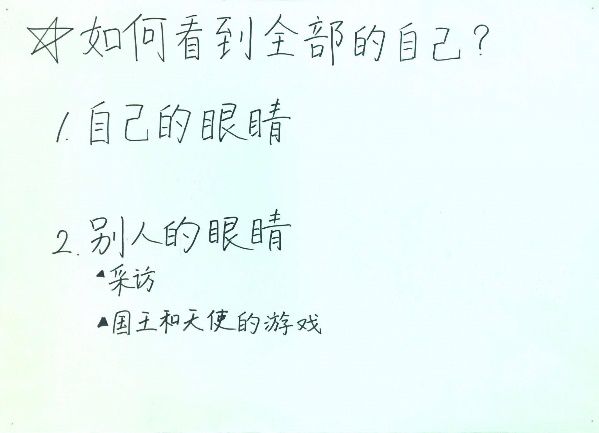 ☆如何看到全部的自己?
1. 自己的眼睛
2. 别人的眼睛
▲采访
▲国王和天使的游戏